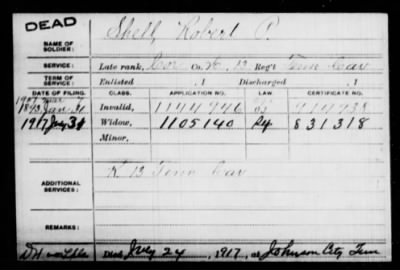 DEAD
NAME OF SOLDIER:
Shell, Robert P.
SERVICE:
Late rank, Cor Co. K, 13 Reg't Tenn Cav
TERM OF SERVICE:
Enlisted , 1 Discharged , 1
DATE OF FILING. CLASS. APPLICATION NO. LAW. CERTIFICATE NO.
1893 Jan 31 Invalid, 1144946 914738
1917 July 31 Widow, 1105140 831318
Minor,
ADDITIONAL SERVICES:
K 13 Tenn Cav
REMARKS:
Died July 24, 1917, at Johnson City Tenn